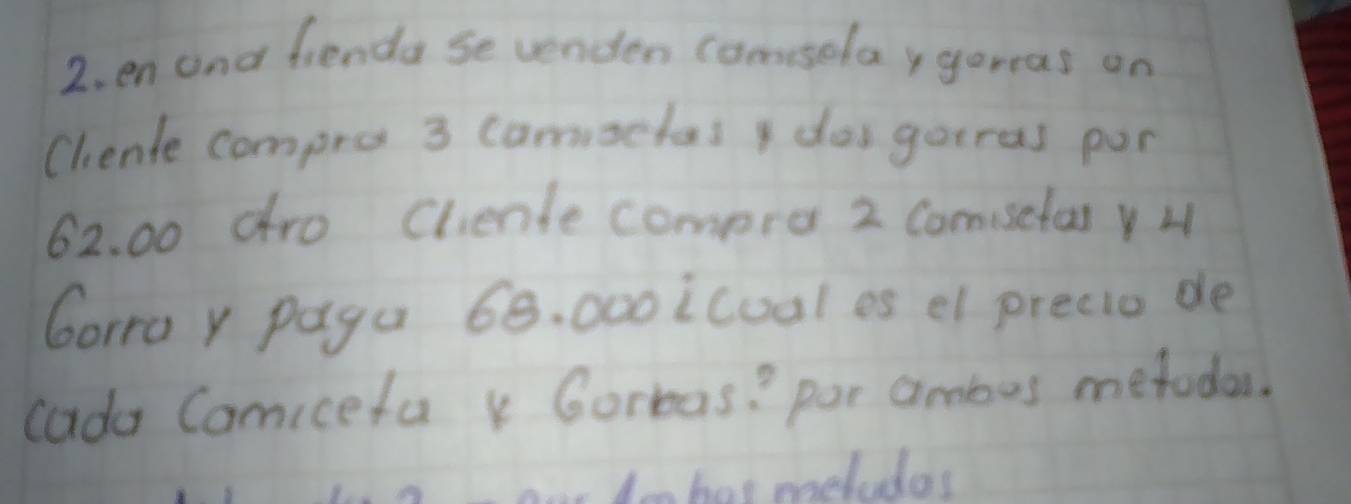 2. en una tienda se venden camiseta y gorras un
Cliente compra 3 camisetas y dos gorras por
62.00 otro Cliente compra 2 Camisetas y 4
Gorra y paga 68.000 ¿Cual es el precio de
cada Camiceta y Gorras? por ambos metodos.
metodos